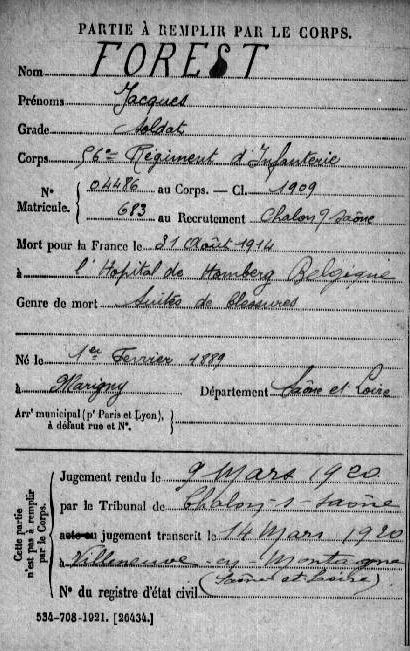 PARTIE À REMPLIR PAR LE CORPS.
Nom FOREST
Prénoms Jacques
Grade Soldat
Corps 56e Régiment d'Infanterie
N° Matricule. { 04486 au Corps. — Cl. 1909
683 au Recrutement Chalon s/ Saône
Mort pour la France le 31 Août 1914
à l'Hopital de Homberg Belgique
Genre de mort Suites de blessures
Né le 1er Fevrier 1889
à Marigny Département Saône et Loire
Arrt municipal (pr Paris et Lyon), à défaut rue et N°. }
Cette partie n'est pas à remplir par le Corps. {
Jugement rendu le 9 Mars 1920
par le Tribunal de Chalon-s-Saône
acte ou jugement transcrit le 14 Mars 1920
à Villeneuve en Montagne
(Saône et Loire)
N° du registre d'état civil
534-708-1921. [26434.]